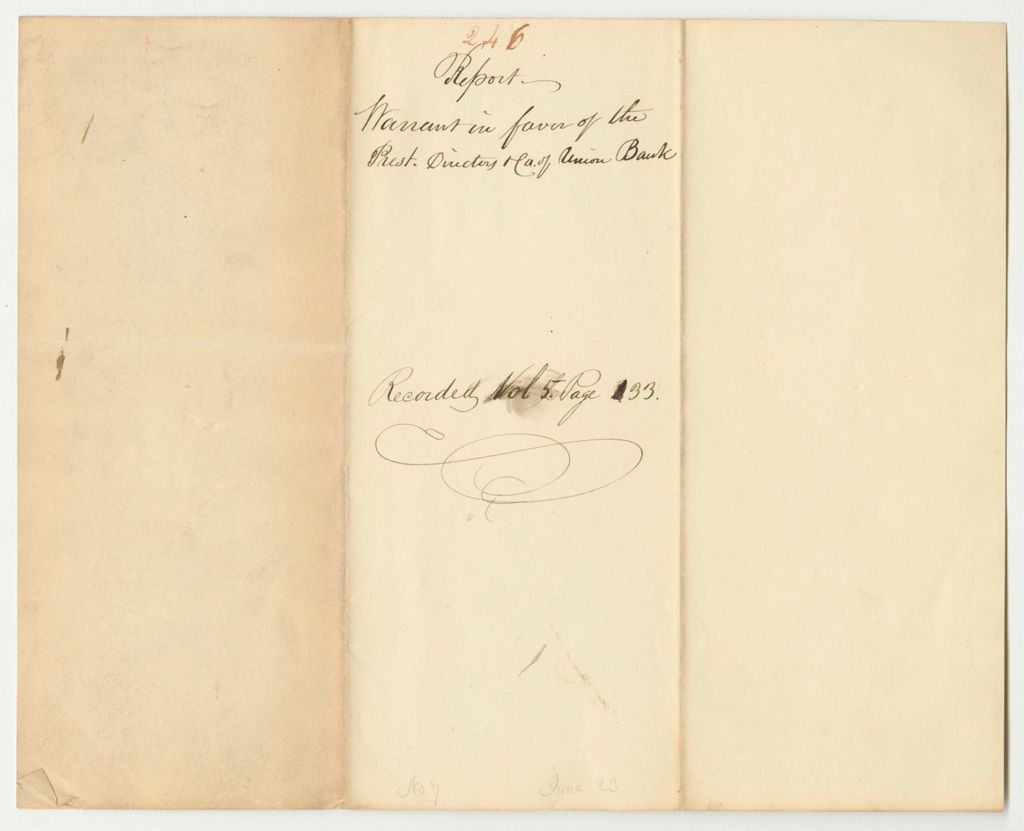 246
Report
Warrant in favor of the
Prest. Directors & Co. of Union Bank
Recorded Vol 5. Page 133.
No 7 June 23